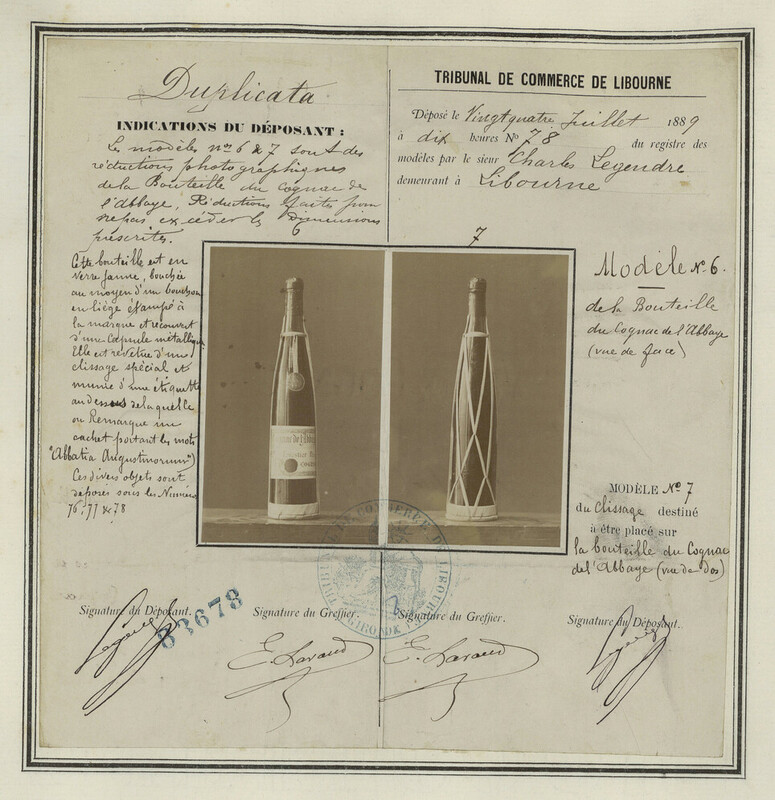 Duplicata
INDICATIONS DU DÉPOSANT :
Les modèles nos 6 & 7 sont des
réductions photographiques
de la Bouteille du Cognac de
l'abbaye, Réductions faites pour
ne pas excéder les Dimensions
prescrites.
6
Cette bouteille est en
verre jaune, bouchée
au moyen d'un bouchon
en liège étampé à
la marque et recouvert
d'une Capsule métallique
Elle est revêtue d'une
clissage spécial et
munie d'une étiquette
au dessous de laquelle
on Remarque un
cachet portant les mots
"Abbatia Augustinorum")
Ces divers objets sont
déposés sous les Numéros
76, 77 & 78
TRIBUNAL DE COMMERCE DE LIBOURNE
Déposé le Vingt quatre Juillet 1889
à dix heures No 78 du registre des
modèles par le sieur Charles Legendre
demeurant à Libourne
7
Modèle No 6.
de la Bouteille
du Cognac de l'Abbaye
(vue de face)
MODÈLE No 7
du Clissage destiné
à être placé sur
la bouteille du Cognac
de l'Abbaye (vue de dos)
TRIBUNAL DE COMMERCE DE LIBOURNE
GIRONDE
Signature du Déposant.
83678
Signature du Greffier.
E. Lavaud
Signature du Greffier.
E. Lavaud
Signature du Déposant.